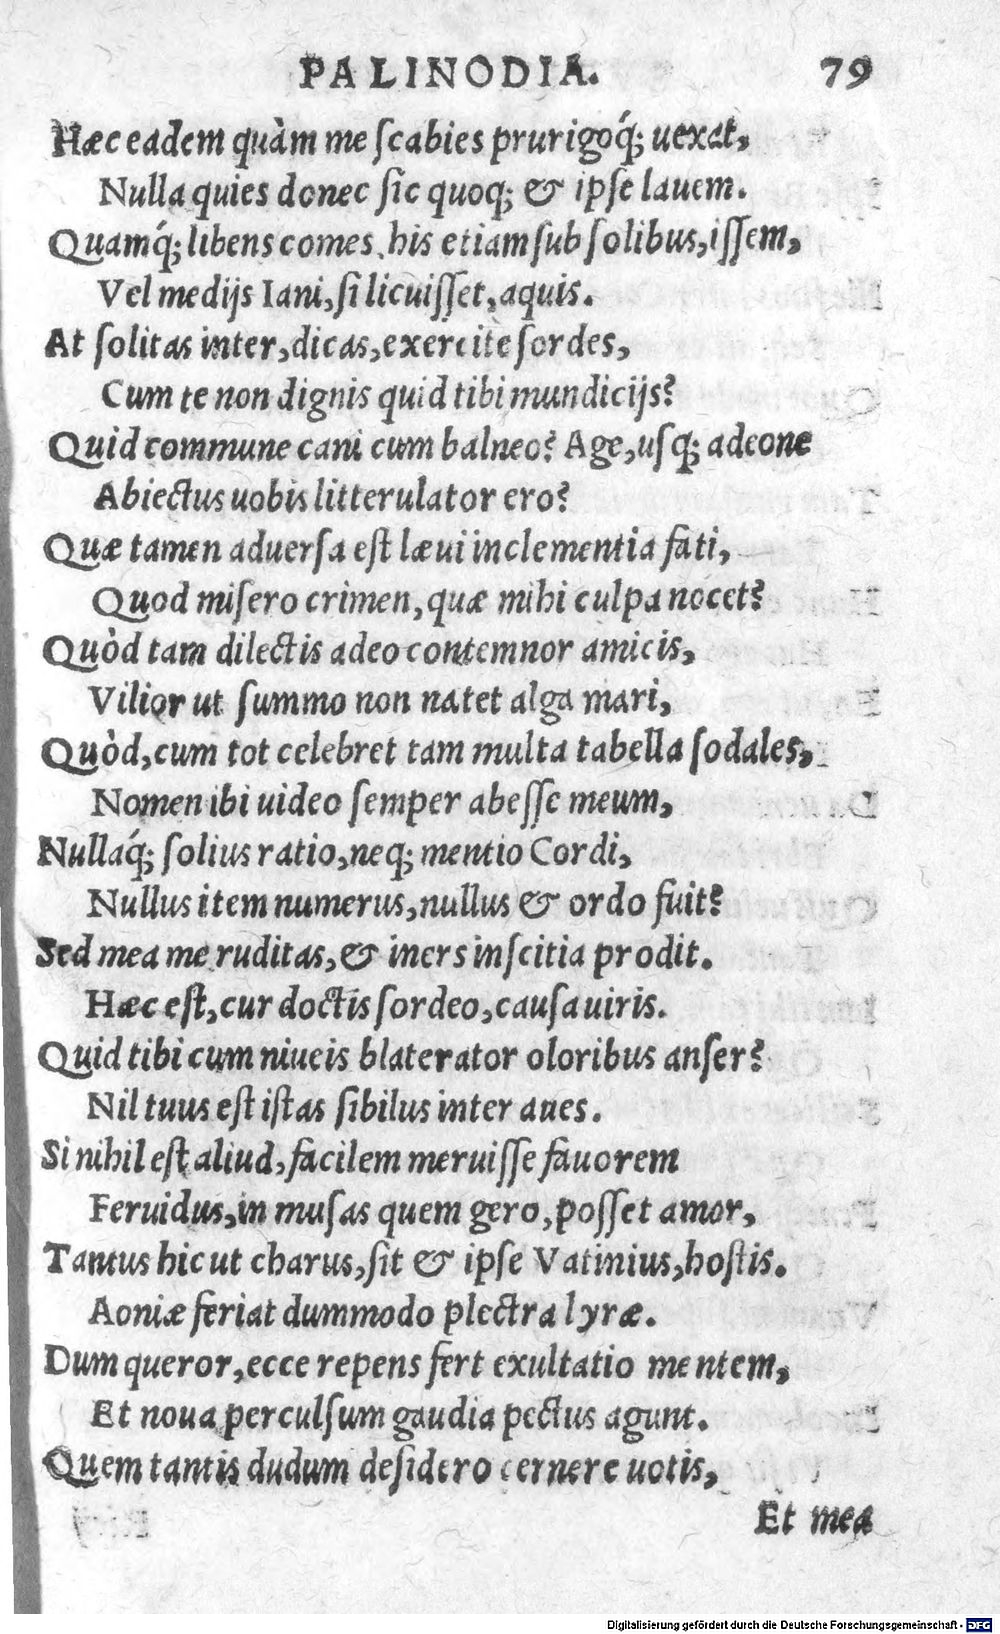 PALINODIA. 79
Hæc eadem quàm me ſcabies prurigoq́; uexat,
Nulla quies donec ſic quoq; & ipſe lauem.
Quamq́; libens comes his etiam ſub ſolibus, iſſem,
Vel medijs Iani, ſi licuiſſet, aquis.
At ſolitas inter, dicas, exercite ſordes,
Cum te non dignis quid tibi mundicijs?
Quid commune cani cum balneo? Age, uſq; adeone
Abiectus uobis litterulator ero?
Quæ tamen aduerſa eſt læui inclementia fati,
Quod miſero crimen, quæ mihi culpa nocet?
Quòd tam dilectis adeo contemnor amicis,
Vilior ut ſummo non natet alga mari,
Quòd, cum tot celebret tam multa tabella ſodales,
Nomen ibi uideo ſemper abeſſe meum,
Nullaq́; ſolius ratio, neq; mentio Cordi,
Nullus item numerus, nullus & ordo fuit?
Sed mea me ruditas, & iners inſcitia prodit.
Hæc eſt, cur doctis ſordeo, cauſa uiris.
Quid tibi cum niueis blaterator oloribus anſer?
Nil tuus eſt iſtas ſibilus inter aues.
Si nihil eſt aliud, facilem meruiſſe fauorem
Feruidus, in muſas quem gero, poſſet amor,
Tantus hic ut charus, ſit & ipſe Vatinius, hoſtis.
Aoniæ feriat dummodo plectra lyræ.
Dum queror, ecce repens fert exultatio mentem,
Et noua perculſum gaudia pectus agunt.
Quem tantis dudum deſidero cernere uotis,
Et mea
Digitalisierung gefördert durch die Deutsche Forschungsgemeinschaft - DFG